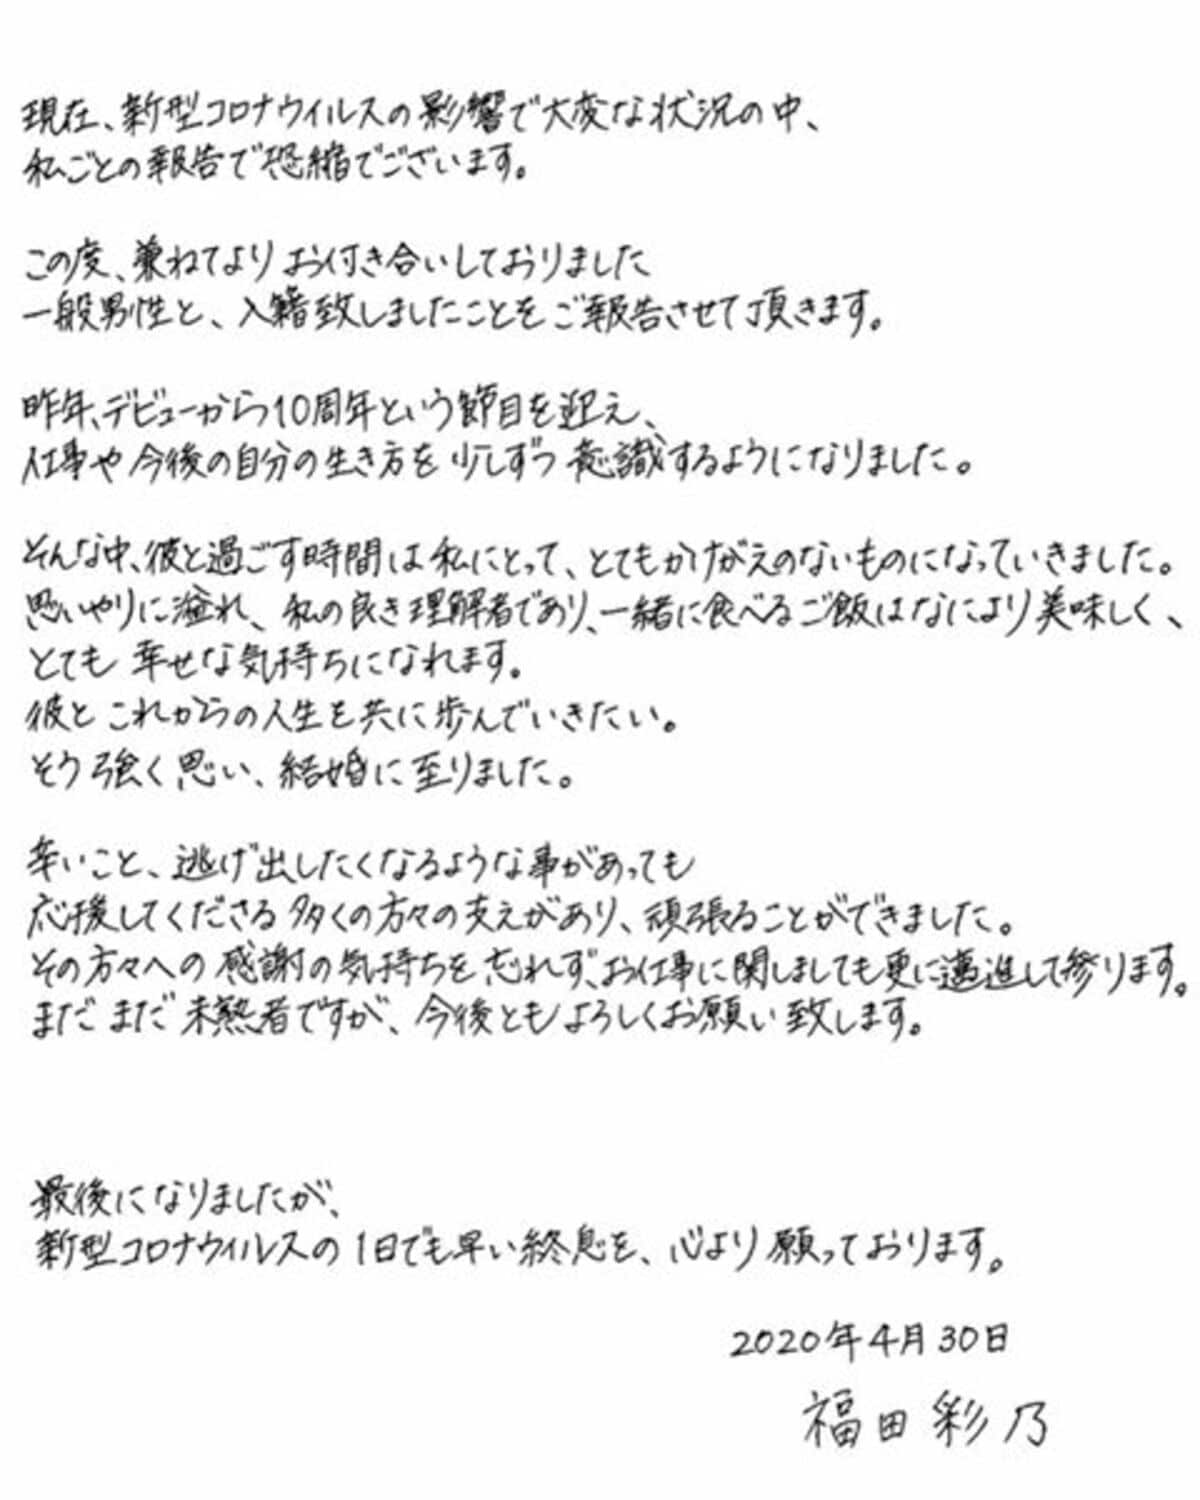 現在、新型コロナウイルスの影響で大変な状況の中、
私ごとの報告で恐縮でございます。
この度、兼ねてよりお付き合いしておりました
一般男性と、入籍致しましたことをご報告させて頂きます。
昨年、デビューから10周年という節目を迎え、
仕事や今後の自分の生き方を少しずつ意識するようになりました。
そんな中、彼と過ごす時間は私にとって、とてもかけがえのないものになっていきました。
思いやりに溢れ、私の良き理解者であり、一緒に食べるご飯はなにより美味しく、
とても幸せな気持ちになれます。
彼とこれからの人生を共に歩んでいきたい。
そう強く思い、結婚に至りました。
辛いこと、逃げ出したくなるような事があっても
応援してくださる多くの方々の支えがあり、頑張ることができました。
その方々への感謝の気持ちを忘れず、お仕事に関しましても更に邁進して参ります。
まだまだ未熟者ですが、今後ともよろしくお願い致します。
最後になりましたが、
新型コロナウィルスの1日でも早い終息を、心より願っております。
2020年4月30日
福田彩乃